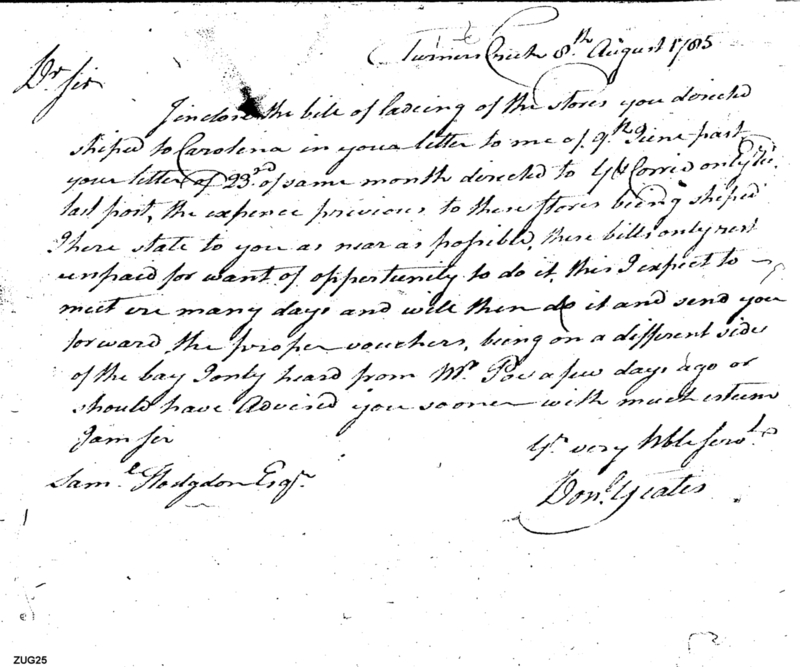 Turners Creek 8th August 1785
Dr Sir
I inclose the bill of ladeing of the stores you directed
shiped to Carolena in your letter to me of 9th June past
your letter of 23rd of same month directed to
last post, the expence previous to these stores being shiped
I here state to you as near as possible, these bills only rest
unpaid for want of opportunity to do it, this I expect to
meet ere many days and will then do it and send you
forward the proper vouchers, being on a different side
of the bay I only heard from Mr Poe a few days ago or
should have Advised you sooner with much esteem
I am Sir
Yr very Hble Servt
Saml Hodgdon Esqr
Donl Yeates
ZUG25